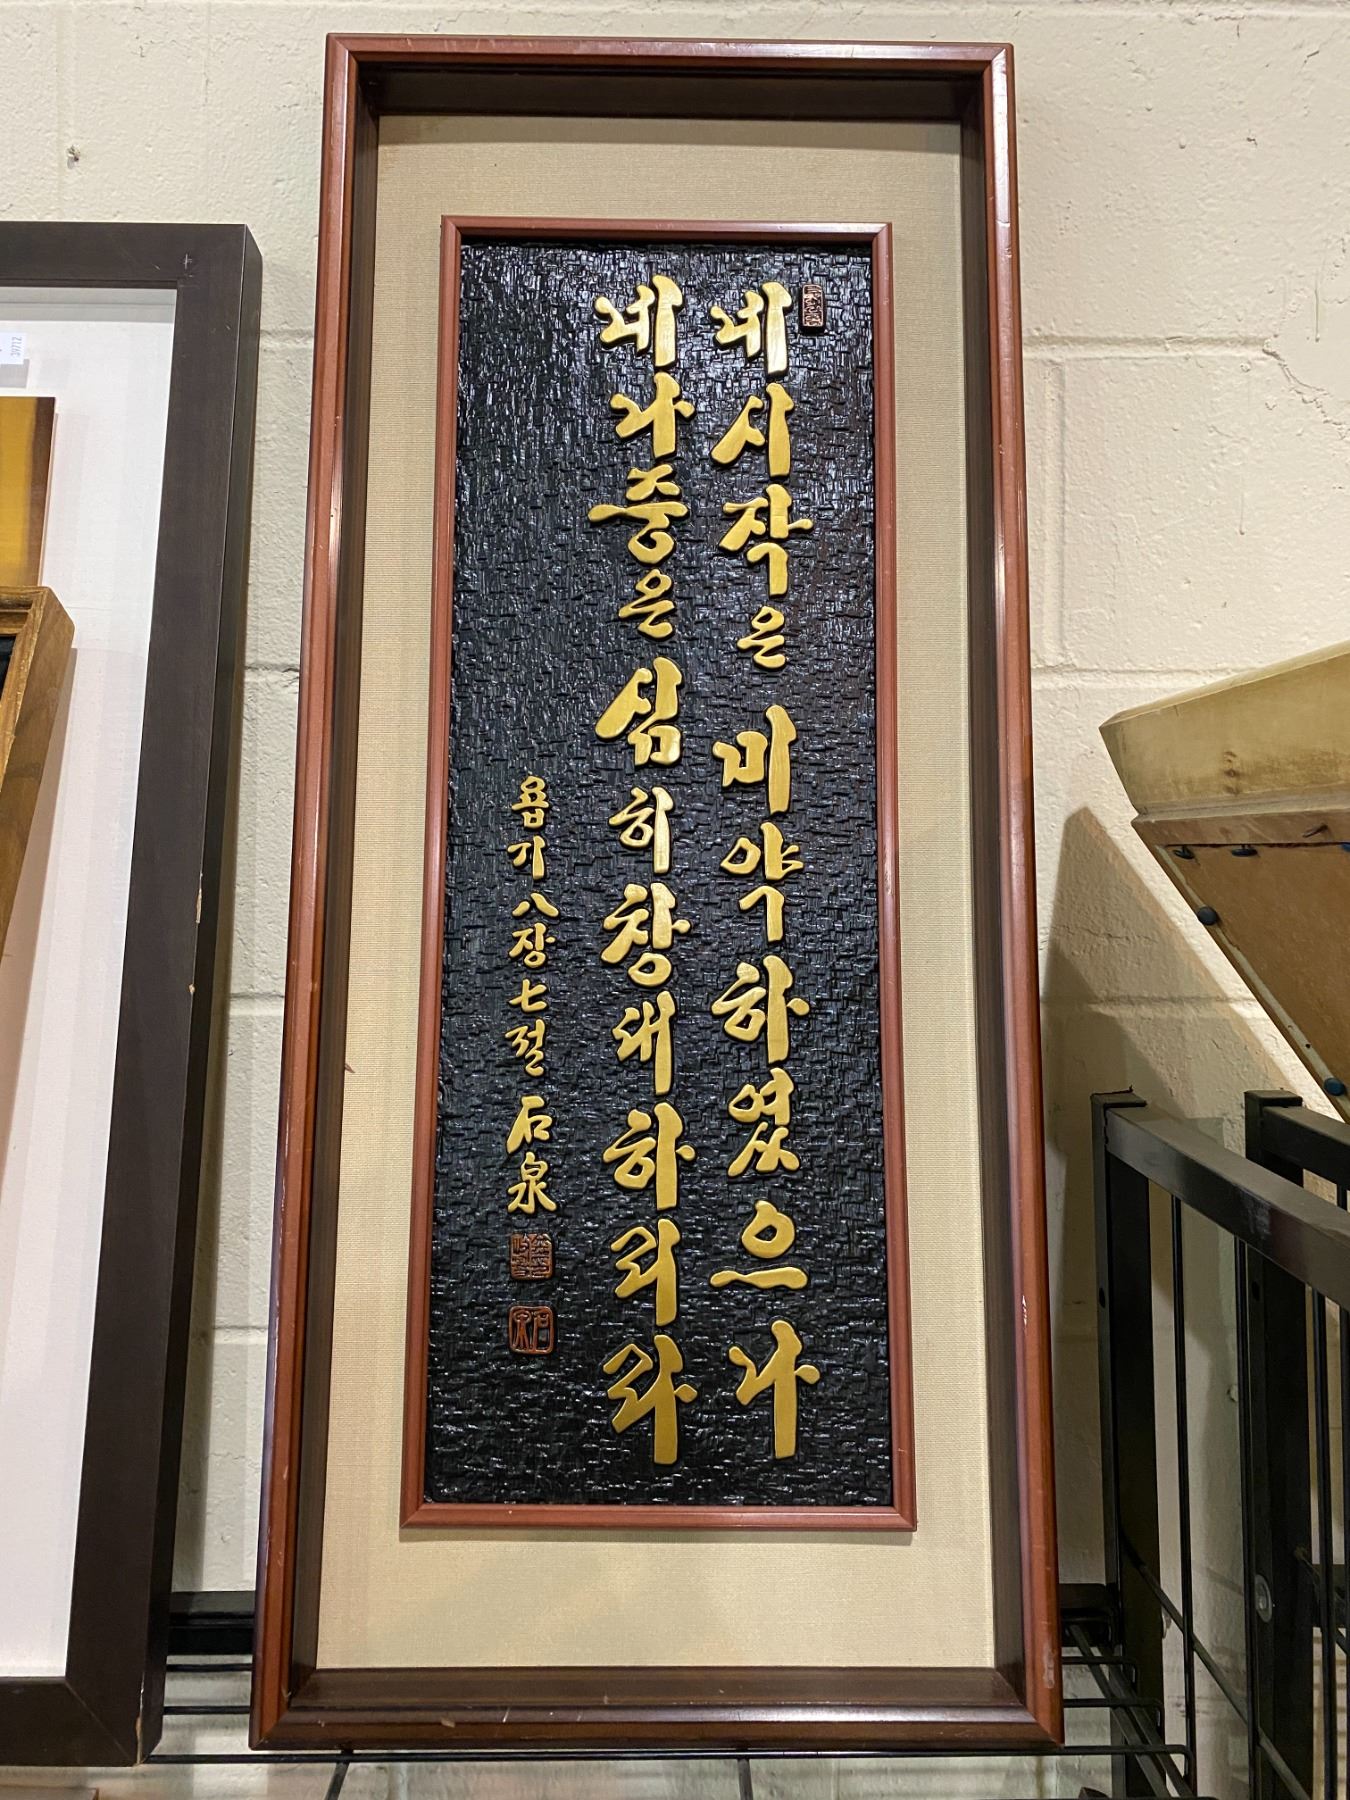 네 시작은 미약하였으나
네 나중은 심히 창대하리라
욥기 八장 七절 石泉
39712